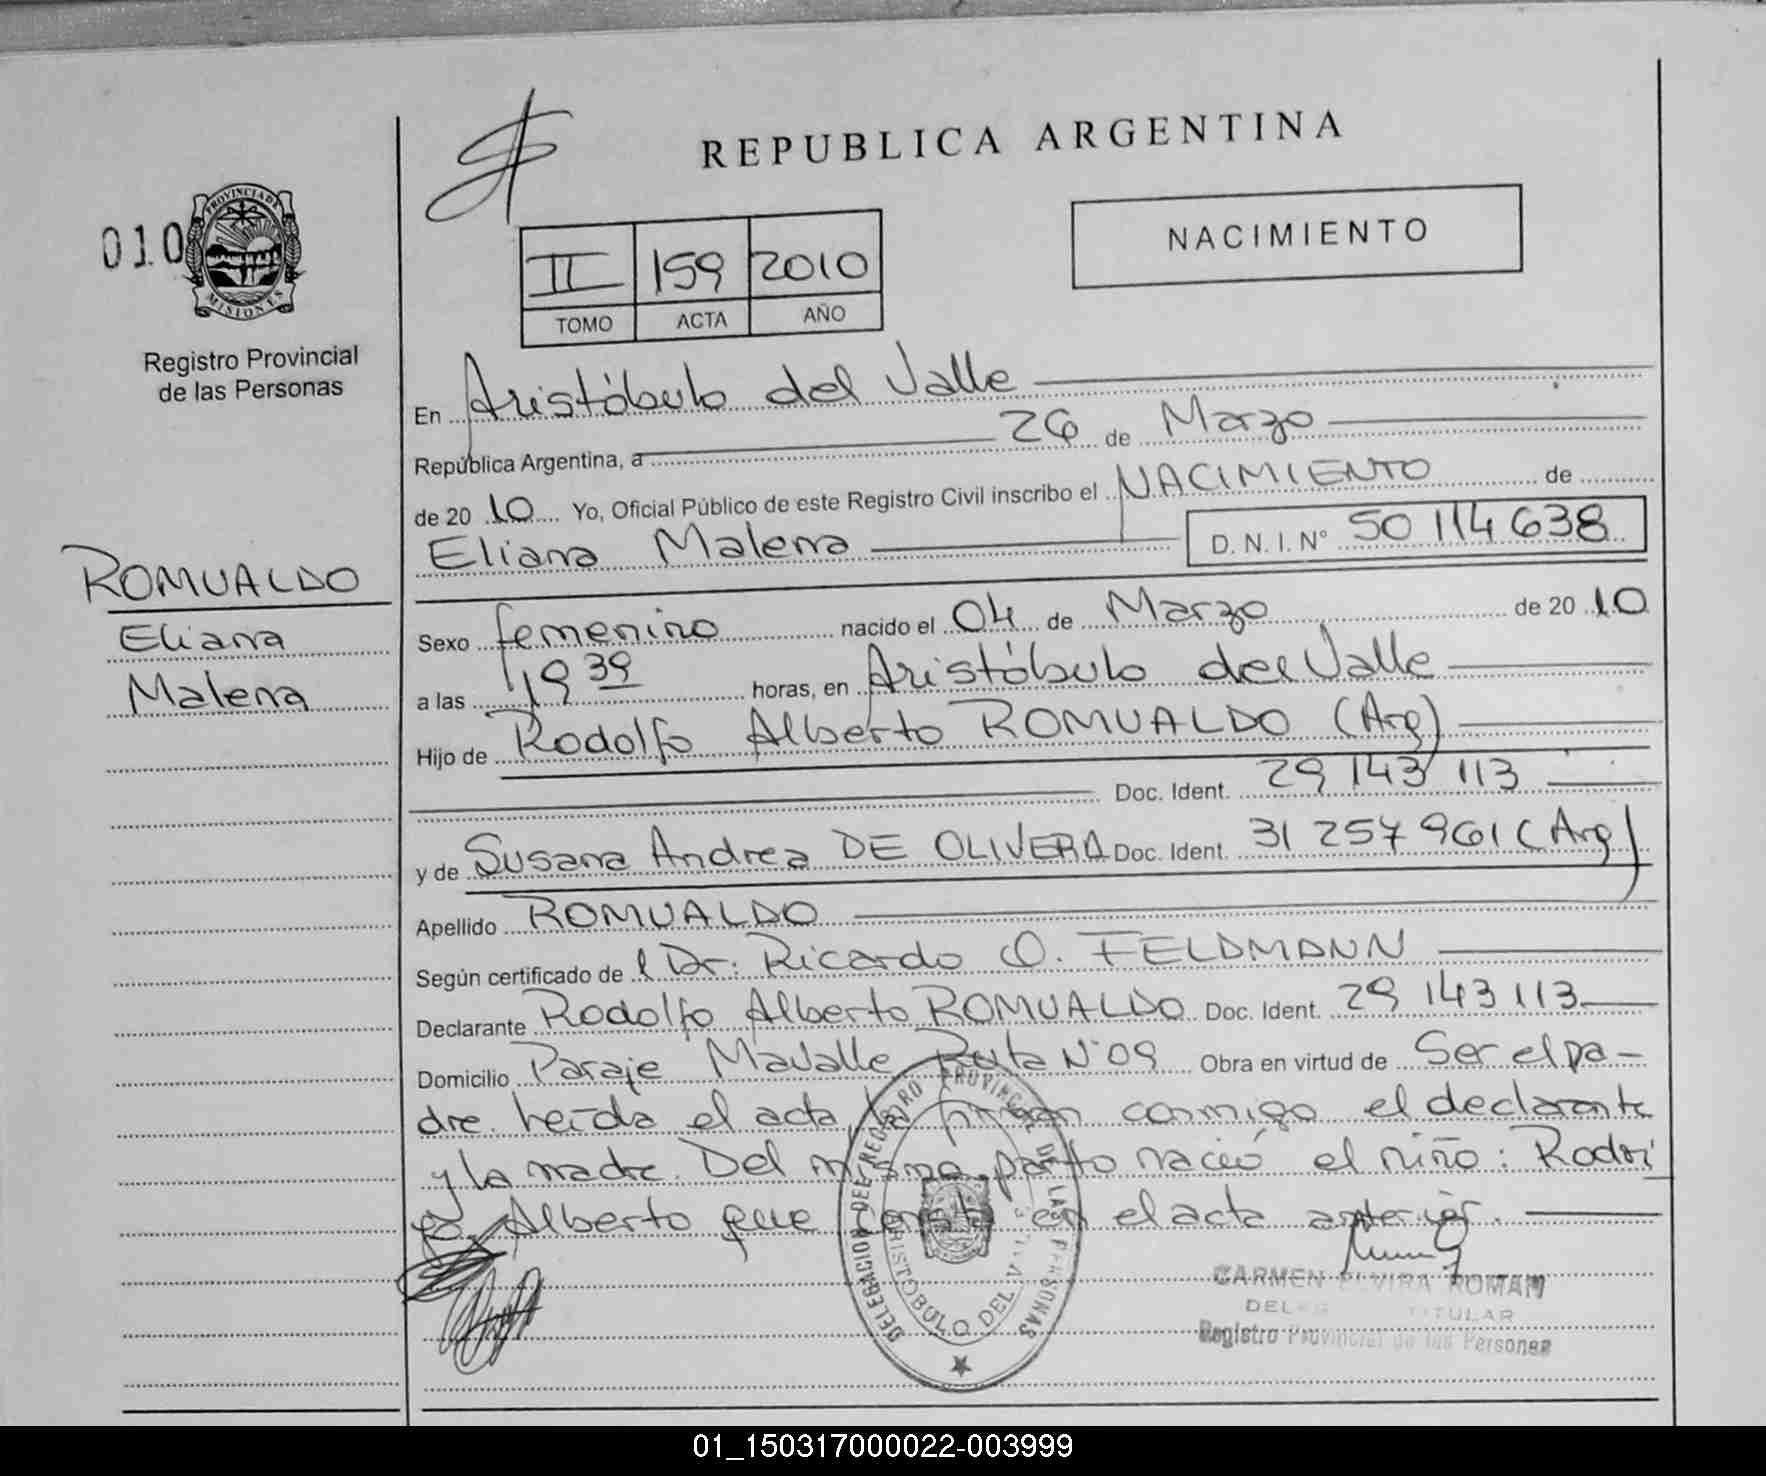 REPUBLICA ARGENTINA
010
PROVINCIA DE
MISIONES
Registro Provincial
de las Personas
II 159 2010
TOMO ACTA AÑO
NACIMIENTO
En Aristóbulo del Valle
República Argentina, a 26 de Marzo
de 20 10 Yo, Oficial Público de este Registro Civil inscribo el NACIMIENTO de
Eliana Malena D.N.I.N° 50 114 638
ROMUALDO
Eliana
Malena
Sexo femenino nacido el 04 de Marzo de 20 10
a las 19 39 horas, en Aristóbulo del Valle
Hijo de Rodolfo Alberto ROMUALDO (Arg)
Doc. Ident. 29 143 113
y de Susana Andrea DE OLIVERA Doc. Ident. 31 257 961 (Arg)
Apellido ROMUALDO
Según certificado de l Dr. Ricardo O. FELDMANN
Declarante Rodolfo Alberto ROMUALDO Doc. Ident. 29 143 113
Domicilio Paraje Mavalle Ruta N° 09 Obra en virtud de Ser el pa-
dre. Leída el acta, la firman conmigo el declarante
y la madre. Del mismo parto nació el niño: Rodri
go Alberto que consta en el acta anterior.
DELEGACION DEL REGISTRO PROVINCIAL DE LAS PERSONAS
ARISTOBULO DEL VALLE
CARMEN ELVIRA ROMAN
TITULAR
Registro Provincial de las Personas
01_150317000022-003999